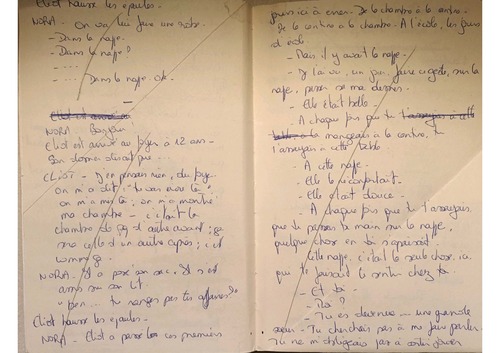 Eliot hausse les épaules.
NORA. On va lui faire une robe.
- Dans la nappe.
- Dans la nappe?
- ...
- Dans la nappe. Ok.
NORA. Bonjour
Eliot est arrivé au foyer à 12 ans.
Son dossier disait que...
ELIOT. J'en pensais rien, du foyer.
On m'a dit "tu vas avec là",
on m'a mis là; on m'a montré
ma chambre - c'était la
chambre de d'autre avant; ça
sera celle d'un autre après; c'est
comme ça.
NORA. Il a posé son sac. Il s'est
assis sur son lit.
"bon... tu ranges pas tes affaires?"
Eliot hausse les épaules.
NORA. Eliot a passé ces premiers
jours ici à errer. De la chambre au centre.
De le centre à la chambre. A l'école, les jours
d'école.
- Mais il y avait la nappe.
- Je l'a vu, un jour, faire ce geste, sur la
nappe, passer sa main dessus.
- Elle était belle.
- A chaque fois que tu
mangeais à le centre, tu
t'asseyais à cette table.
- A cette nappe.
- Elle te réconfortait.
- Elle était douce.
- A chaque fois que tu t'asseyais,
que tu passais ta main sur la nappe,
quelque chose en toi s'apaisait.
Cette nappe, c'était la seule chose, ici,
qui te faisait te sentir chez toi.
- Et toi.
- Moi?
- Tu es devenue... une grande
soeur. Tu cherchais pas à me faire parler.
Tu ne m'obligeais pas à sortir jouer